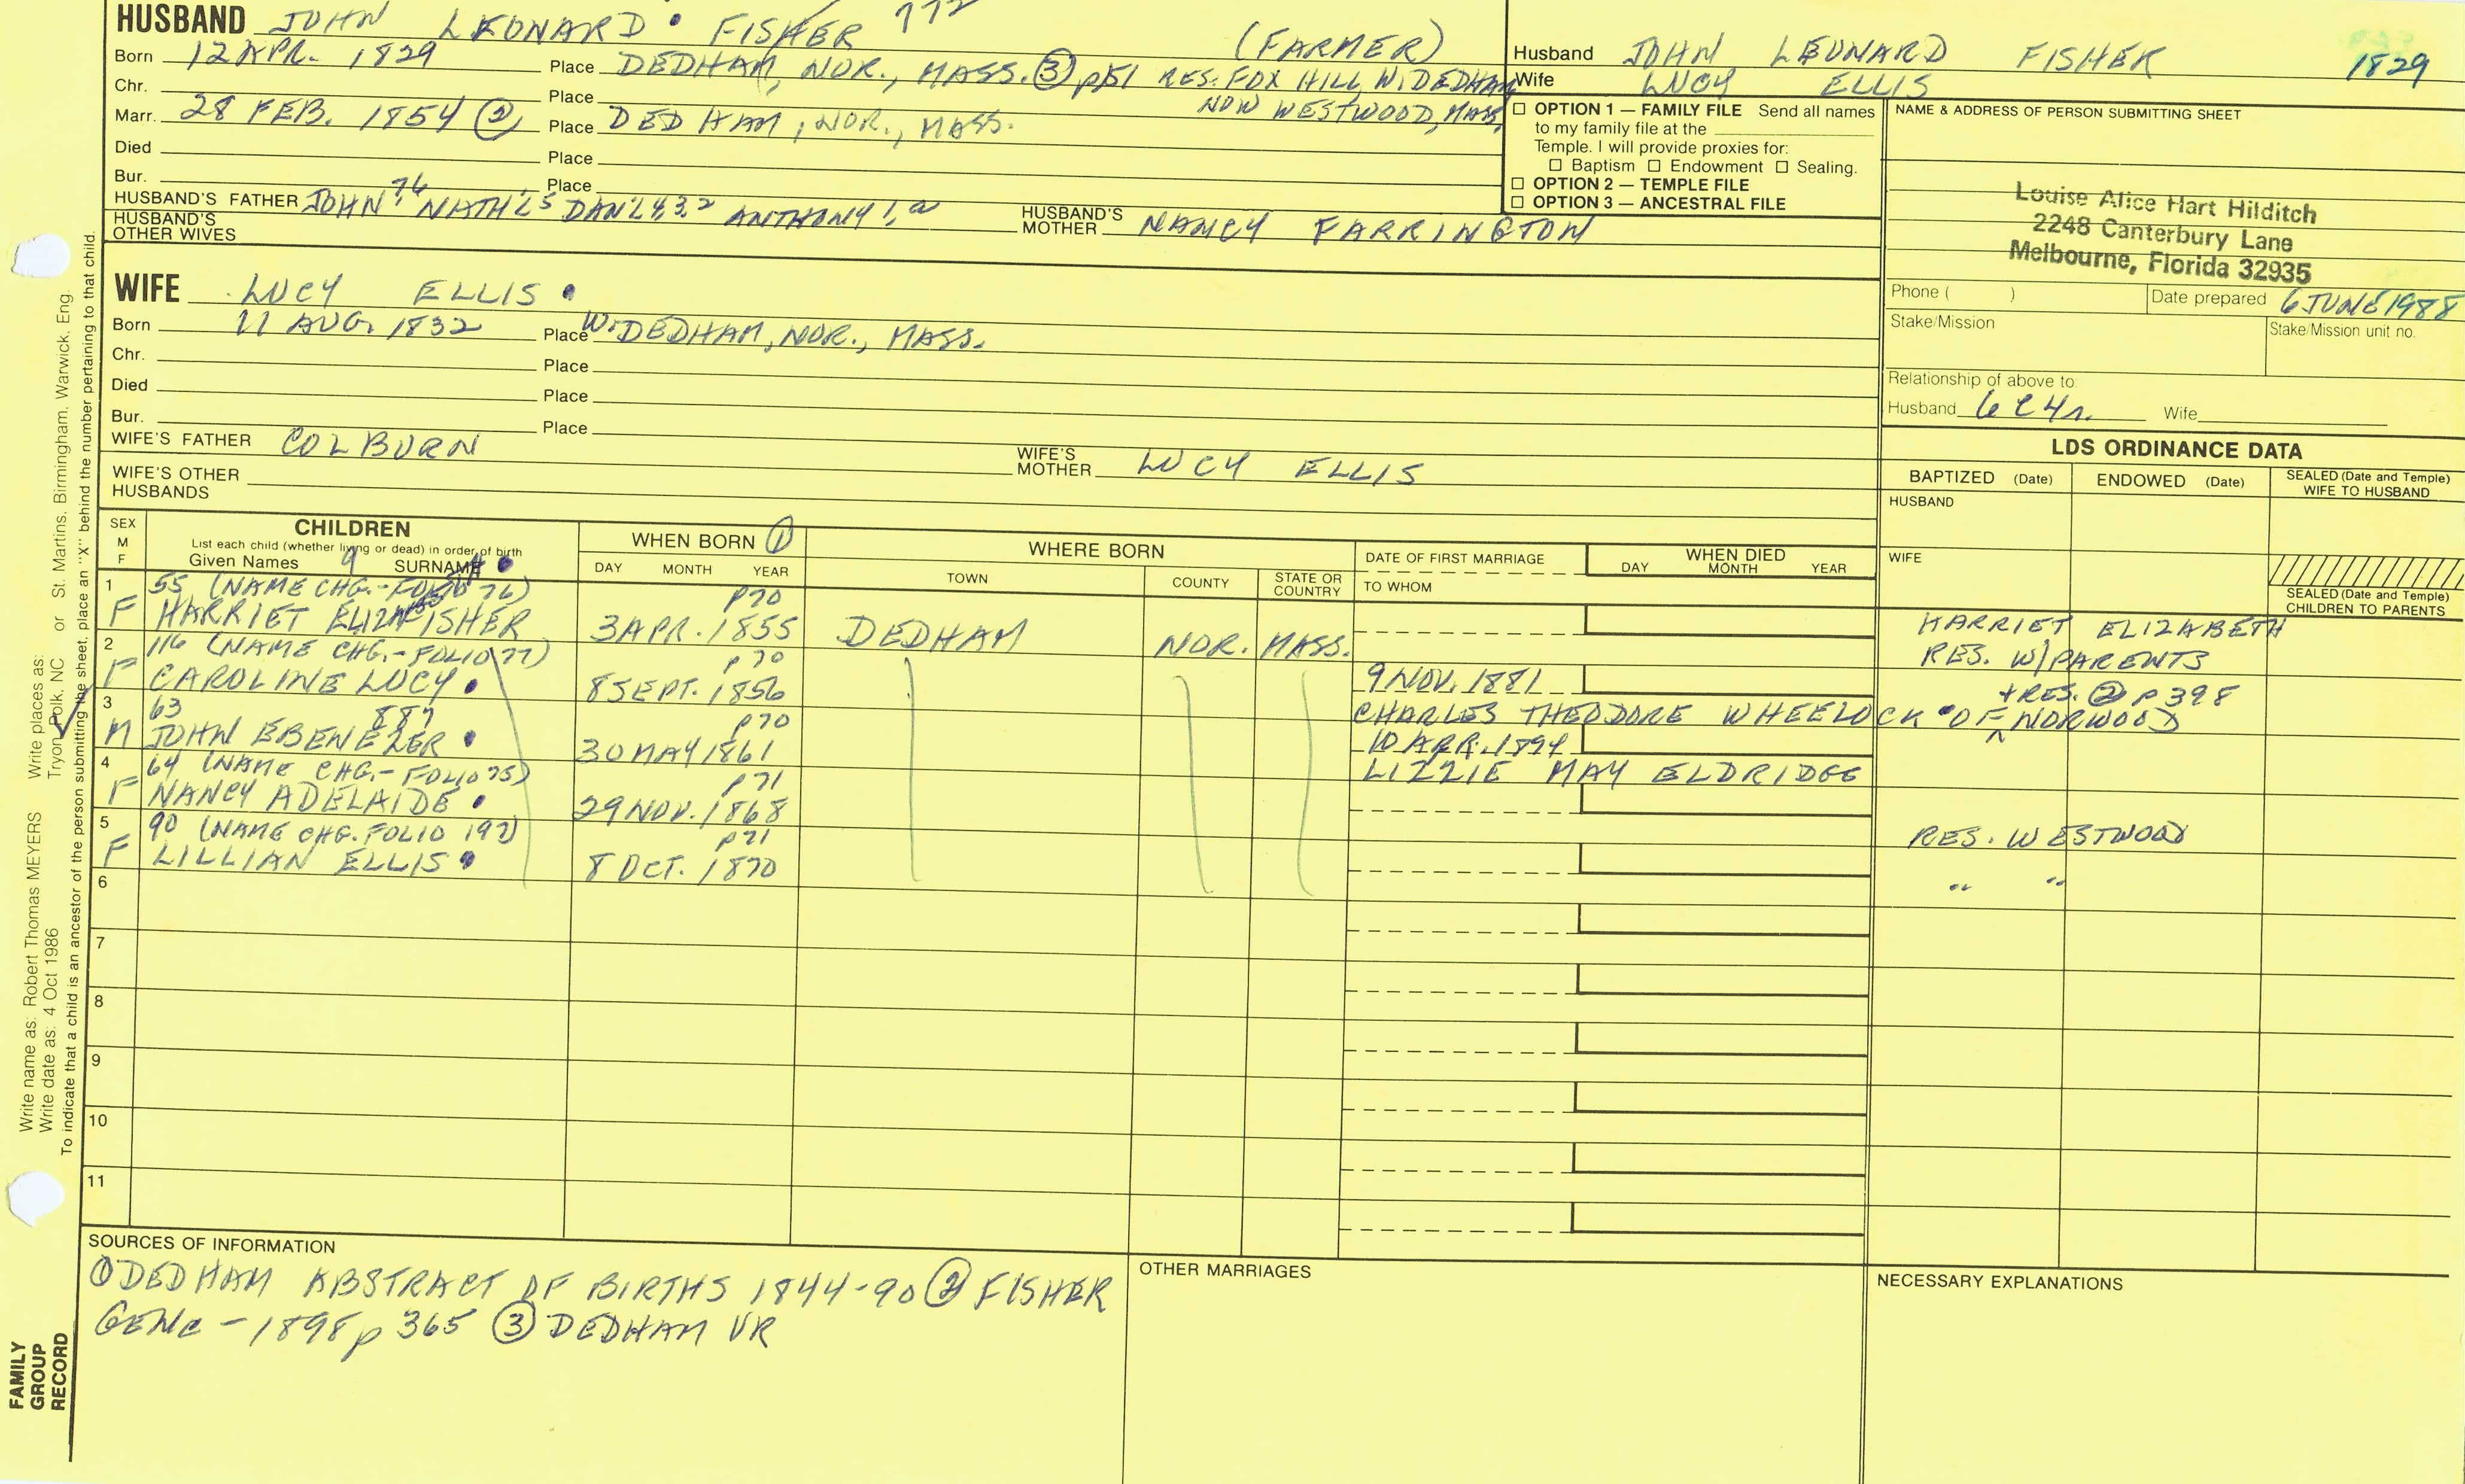 HUSBAND JOHN LEONARD FISHER 772
(FARMER)
Born 12 APR. 1829 Place DEDHAM, NOR., MASS. ③ p51 RES. FOX HILL, W. DEDHAM
Chr. Place NOW WESTWOOD, MASS.
Marr. 28 FEB. 1854 ② Place DEDHAM, NOR., MASS.
Died Place
Bur. Place
HUSBAND'S FATHER JOHN 7,6 NATH'L 5 DAN'L 4,3,2 ANTHONY 1,a HUSBAND'S MOTHER NANCY FARRINGTON
HUSBAND'S OTHER WIVES
WIFE LUCY ELLIS
Born 11 AUG. 1832 Place W. DEDHAM, NOR., MASS.
Chr. Place
Died Place
Bur. Place
WIFE'S FATHER COLBURN WIFE'S MOTHER LUCY ELLIS
WIFE'S OTHER HUSBANDS
Husband JOHN LEONARD FISHER 1829
Wife LUCY ELLIS
☐ OPTION 1 — FAMILY FILE Send all names
to my family file at the
Temple. I will provide proxies for:
☐ Baptism ☐ Endowment ☐ Sealing.
☐ OPTION 2 — TEMPLE FILE
☐ OPTION 3 — ANCESTRAL FILE
NAME & ADDRESS OF PERSON SUBMITTING SHEET
Louise Alice Hart Hilditch
2248 Canterbury Lane
Melbourne, Florida 32935
Phone ( ) Date prepared 6 JUNE 1988
Stake/Mission Stake/Mission unit no.
Relationship of above to:
Husband 6C4r. Wife
LDS ORDINANCE DATA
BAPTIZED (Date) ENDOWED (Date) SEALED (Date and Temple) WIFE TO HUSBAND
HUSBAND
WIFE
SEALED (Date and Temple) CHILDREN TO PARENTS
SEX M F
CHILDREN
List each child (whether living or dead) in order of birth
Given Names 9 SURNAME
WHEN BORN ①
DAY MONTH YEAR
WHERE BORN
TOWN COUNTY STATE OR COUNTRY
DATE OF FIRST MARRIAGE
TO WHOM
WHEN DIED
DAY MONTH YEAR
1 55 (NAME CHG.-FOLIO 76) p70
F HARRIET ELIZA FISHER 3 APR. 1855 DEDHAM NOR. MASS. HARRIET ELIZABETH
RES. W/PARENTS
2 116 (NAME CHG.-FOLIO 77) p70
F CAROLINE LUCY 8 SEPT. 1856 9 NOV. 1881 + RES. ② p 398
CHARLES THEODORE WHEELOCK OF NORWOOD
3 63 887 p70
M JOHN EBENEZER 30 MAY 1861 10 APR. 1894
LIZZIE MAY ELDRIDGE
4 64 (NAME CHG.-FOLIO 75) p71
F NANCY ADELAIDE 29 NOV. 1868 RES. WESTWOOD
5 90 (NAME CHG. FOLIO 197) p71
F LILLIAN ELLIS 8 OCT. 1870 " "
6
7
8
9
10
11
SOURCES OF INFORMATION
① DEDHAM ABSTRACT OF BIRTHS 1844-90 ② FISHER
GENE - 1898 p 365 ③ DEDHAM VR
OTHER MARRIAGES
NECESSARY EXPLANATIONS
FAMILY GROUP RECORD
Write name as: Robert Thomas MEYERS Write places as:
Write date as: 4 Oct 1986 Tryon, Polk, NC or St. Martins, Birmingham, Warwick, Eng.
To indicate that a child is an ancestor of the person submitting the sheet, place an "X" behind the number pertaining to that child.